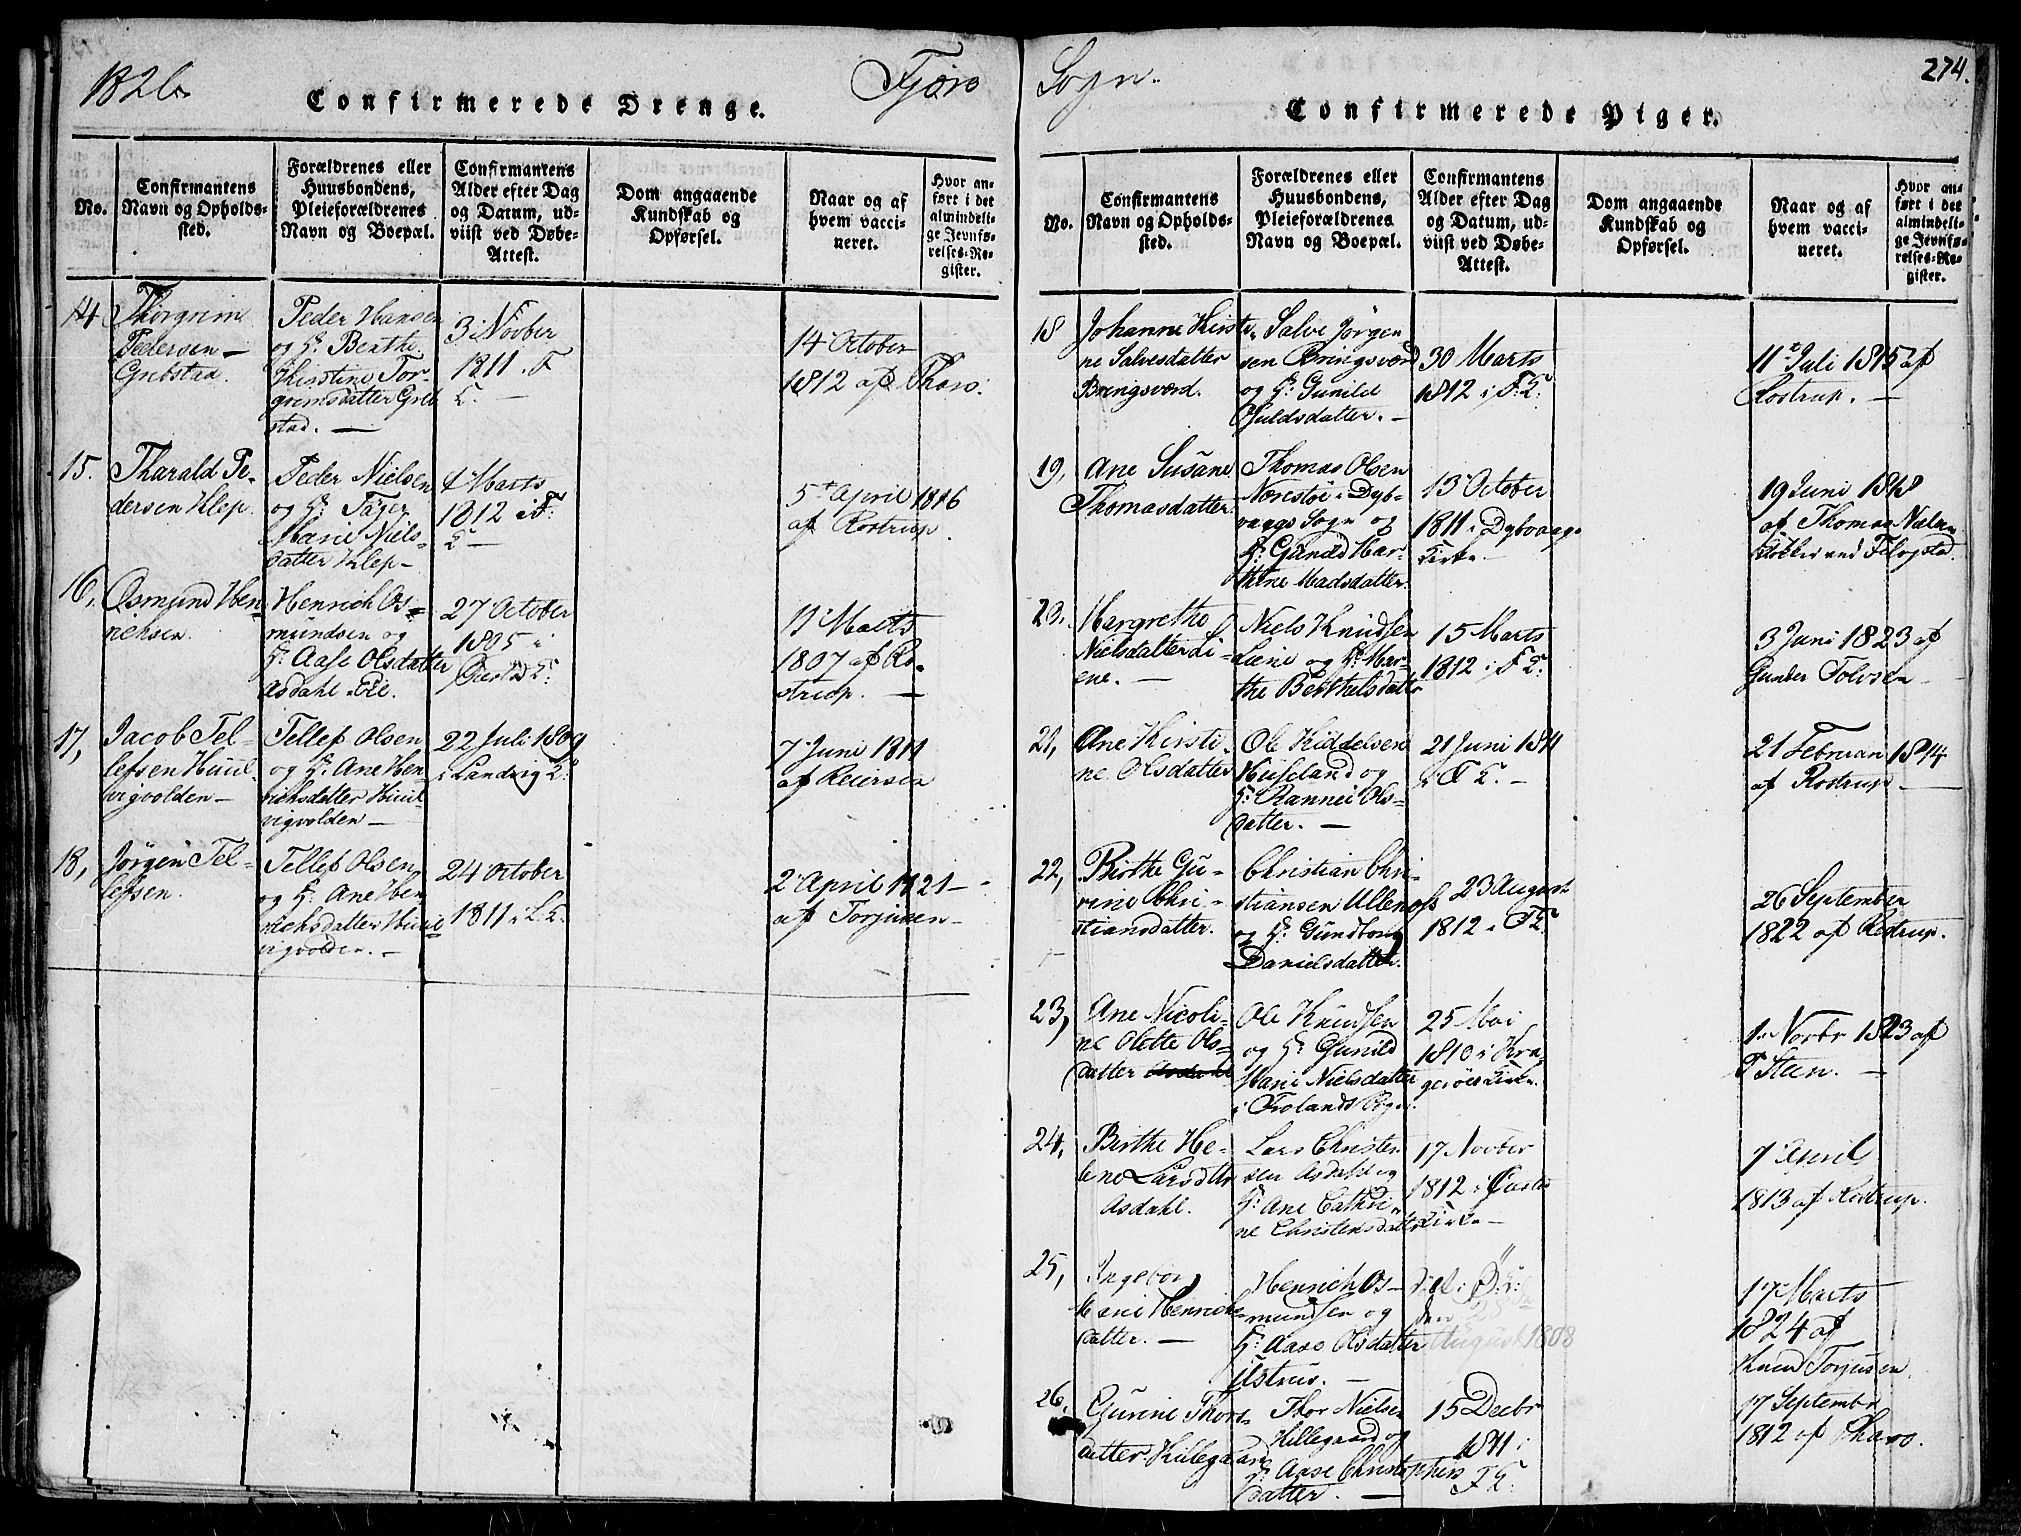 1826.
Fjære
Confirmerede Drenge.
No.
Confirmantens
Navn og Opholds-
sted.
Forældrenes eller
Huusbondens,
Pleieforældrenes
Navn og Boepæl.
Confirmantens
Alder efter Dag
og Datum, ud-
viist ved Døbe-
Attest.
Dom angaaende
Kundskab og
Opførsel.
Naar og af
hvem vacci-
neret.
Hvor an-
ført i det
almindeli-
ge Jevnfø-
relses-Re-
gister.
14
Thorgrim
Pedersen —
Grebstad.
Peder Hansen
og H: Berthe
Kirstine Tor-
grimsdatter Greb
stad. —
3 Novber
1811 i F
K. —
14 October
1812 af Tharo:
15.
Tharald Pe-
dersen Klep.
Peder Nielsen
og H: Tager
Marie Niels-
datter Klep —
4 Marts
1812 i F:
K —
5t April 1816
af Rostrup.
16,
Osmund Hen
richsen.
Henrich Os-
mundsen og
H: Aase Olsdatter
Asdahl Eie.
27 October
1805 i
Øiestd K:
11 Marts
1807 af Ro-
strup. —
17,
Jacob Tel-
lefsen Huul
vigvolden —
Tellef Olsen
og H: Ane Hen
richsdatter Huul
vigvolden —
22 Juli 1809
i Landvig K:
7 Juni 1811
af Reiersen
18,
Jørgen Tel-
lefsen.
Tellef Olsen
og H: Ane Hen
richsdatter Huul
vigvolden. —
24 October
1811 i L: K:
2 April 1821 —
af Torjusen —
Sogn.
274.
Confirmerede Piger.
No.
Confirmantens
Navn og Opholds-
sted.
Forældrenes eller
Huusbondens,
Pleieforældrenes
Navn og Boepæl.
Confirmantens
Alder efter Dag
og Datum, ud-
viist ved Døbe-
Attest.
Dom angaaende
Kundskab og
Opførsel.
Naar og af
hvem vacci-
neret.
Hvor an-
ført i det
almindeli-
ge Jevnfø-
relses-Re-
gister.
18
Johanne Kirsti-
ne Salvesdatter
Bringsværd.
Salve Jørgen
sen Bringsværd
og H: Gunild
Ouldsdatter. —
30 Marts
1812 i F: K:
11t Juli 1815 af
Rostrup. —
19,
Ane Susane
Thomasdatter
Thomas Olsen
Narestøe i Dyb-
vaags Sogn og
H: Gunild Mar-
thine Madsdatter.
13 October
1811 i Dybvaags
Kirke —
19 Juni 1818
af Thomas Nielsen
Klokker ved Flogstd
20.
Margrethe
Nielsdatter Li-
ene. —
Niels Knudsen
Liene og H: Mar-
the Berthelsdatter
15 Marts
1812 i F K:
3 Juni 1823 af
Gunder Tolvsen —
21,
Ane Kirsti-
ne Olsdatter
Ole Kiddelsen
Huseland og
H: Rannei Ols-
datter. —
21 Juni 1811
i F K. —
21 Februar 1814
af Rostrup —
22,
Birthe Gu-
rine Chri-
stiansdatter.
Christian Chri-
stiansen Ullenæs
og H: Gundborg
Danielsdatter.
23 August
1812 i F K:
26 September
1822 af Rostrup.
23,
Ane Nicoli-
ne Olette Ols-
datter
Ole Knudsen
og H: Gunild
Marie Nielsdatter
i Frolands Sogn.
25 Mai
1810 i Kra-
gerøes Kirke.
1 Novbr 1823 af
P Steen. —
24,
Birthe He-
lene Larsdttr
Asdahl.
Lars Christen
sen Asdahl og
H: Ane Cathri-
ne Christensdatter
17 Novber
1812 i Øiestd
Kirke —
7 April
1813 af Rostrup.
25,
Ingeborg
Marie Henrichs-
datter. —
Henrich Os-
mundsen og
H: Aase Olsdatter
Ilstrus. —
i Ø: K:
den 28
August 1808
17 Marts
1824 af
Knud Torjusen.
26.
Gurine Thors-
datter Hillegaard
Thor Nielsen
Hillegaard og
H: Aase Christophers
datter. —
15 Decbr
1811 i
F K:
17 Septembr
1812 af Tharo.